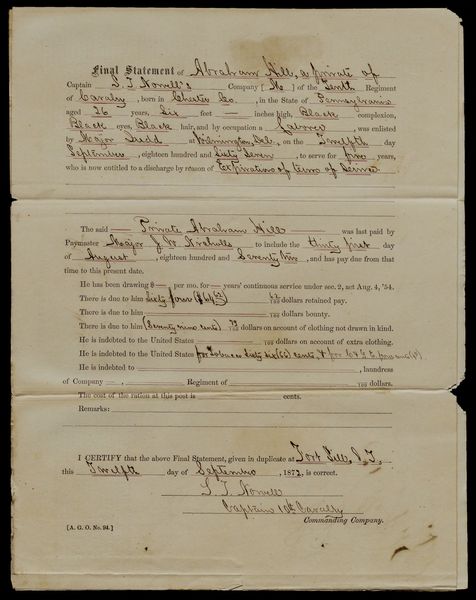 Final Statement of Abraham Hill, a private of
Captain S. T. Norvell's Company [M] of the Tenth Regiment
of Cavalry, born in Chester Co., in the State of Pennsylvania
aged 26 years, Six feet — inches high, Black complexion,
Black eyes, Black hair, and by occupation a Laborer, was enlisted
by Major at Wilmington, Del., on the Twelfth day
September, eighteen hundred and Sixty Seven, to serve for five years,
who is now entitled to discharge by reason of Expiration of term of Service
The said — Private Abraham Hill — was last paid by
Paymaster Major J. W. Nicholls to include the thirty first day
of August, eighteen hundred and Seventy two, and has pay due from that
time to this present date.
He has been drawing $— per mo. for — years' continuous service under sec. 2, act Aug. 4, '54.
There is due to him Sixty four ($64 62/100) 62/100 dollars retained pay.
There is due to him — /100 dollars bounty.
There is due to him (Seventy nine cents) 79/100 dollars on account of clothing not drawn in kind.
He is indebted to the United States — /100 dollars on account of extra clothing.
He is indebted to the United States for Tobacco Sixty six (66) cents, & for C. & G. E. four cents (4)
He is indebted to —, laundress
of Company —, Regiment of — /100 dollars.
The cost of the ration at this post is — cents.
Remarks:
I CERTIFY that the above Final Statement, given in duplicate at Fort Sill, I. T.
this Twelfth day of September, 1872, is correct.
S. T. Norvell
Captain 10th Cavalry
Commanding Company.
[A. G. O. No. 94.]